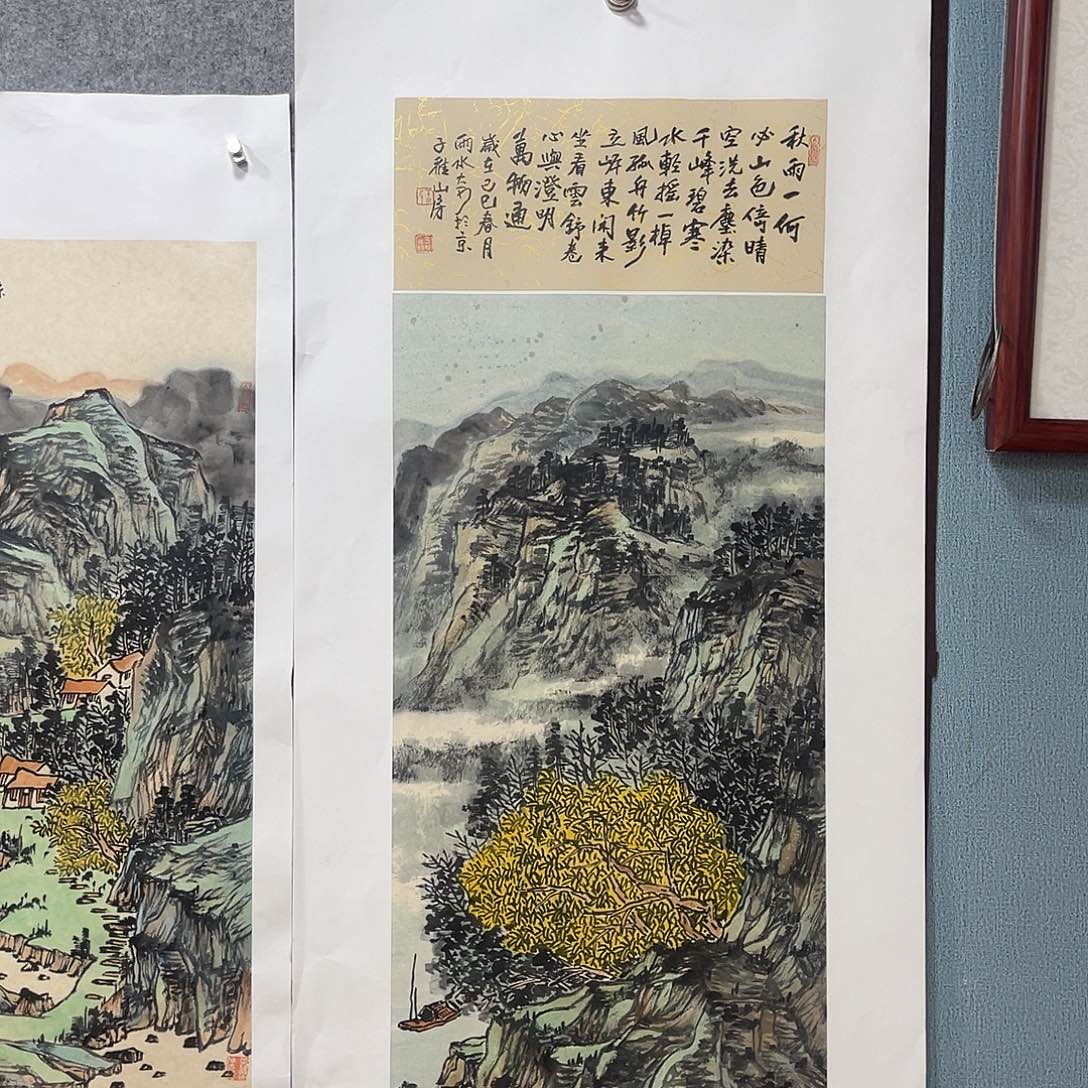 秋雨一何
必山色倚晴
空洗去塵染
千峰碧寒
水輕搖一棹
風孤舟竹影
立岸東閑来
坐看雲舒卷
心與澄明
萬物通
歲在乙巳春月
雨水於京
山房